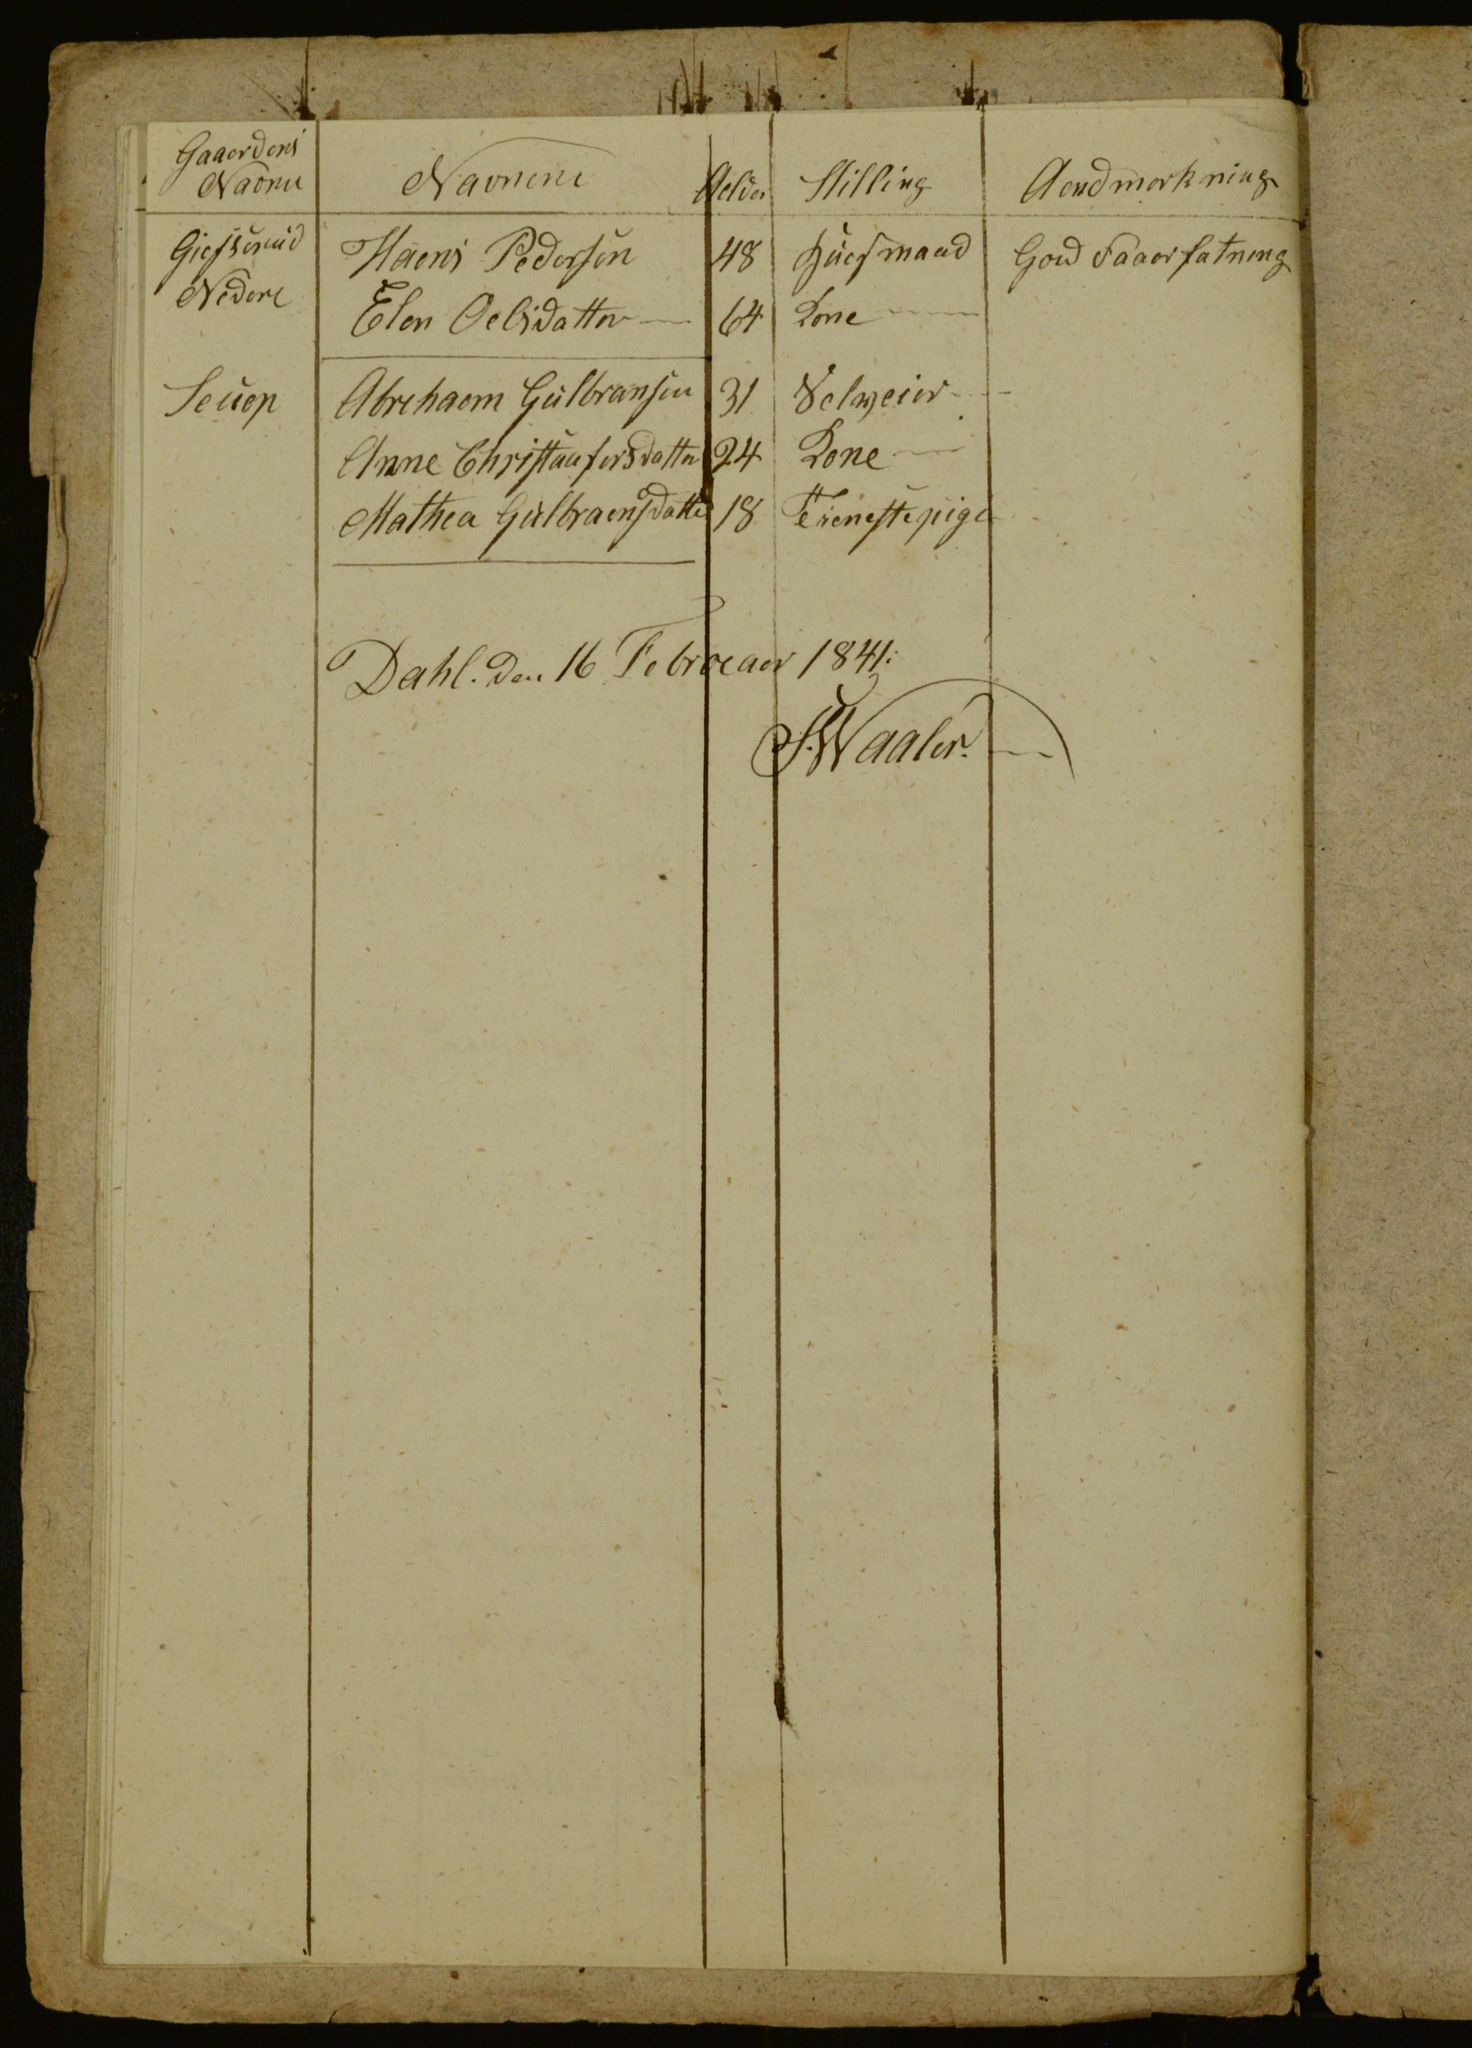 Gaaerdens Navne Navnene Aelder Stilling Aendmerkning
Giefserud Haens Pedersen 48 Huesmand Goud Faaerfatneng
Nedere Elen Oelsdatter 64 Kone
Seuep Abrehaem Gulbransen 31 Selveier
Anne Christaufersdatter 24 Kone
Mathea Gulbraensdatter 18 Tienestepige
Dahl. den 16 Febroeaer 1841:
Waaler.